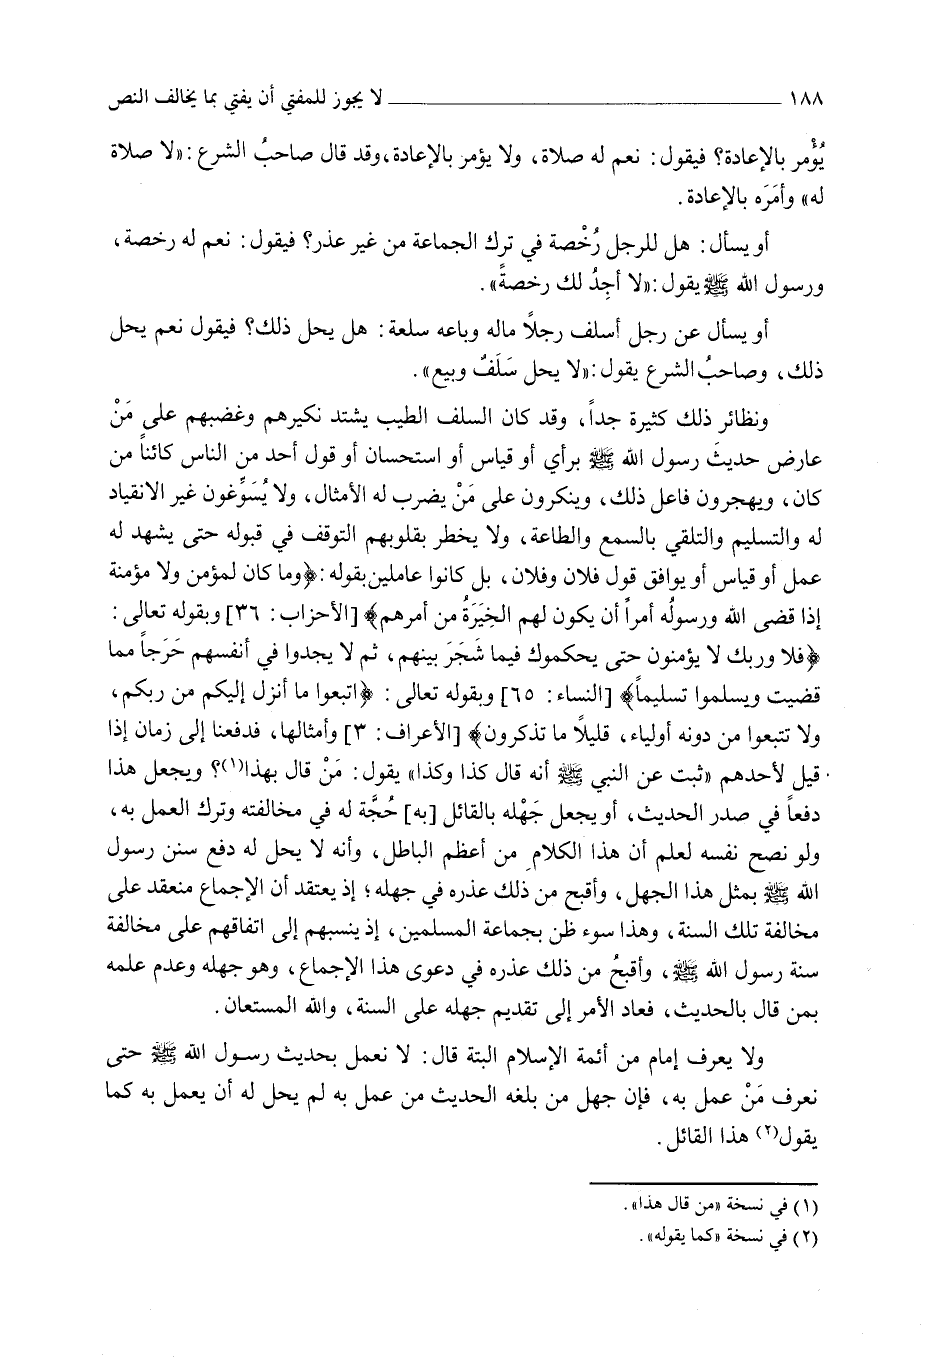 ١٨٨ ــــــــــــــــــــ لا يجوز للمفتي أن يفتي بما يخالف النص
يُؤْمر بالإعادة؟ فيقول: نعم له صلاة، ولا يؤمر بالإعادة،وقد قال صاحبُ الشرع :«لا صلاة
له» وأمَرَه بالإعادة.
أو يسأل: هل للرجل رُخْصة في ترك الجماعة من غير عذر؟ فيقول: نعم له رخصة،
ورسول الله ﷺ يقول:«لا أجِدُ لك رخصةً».
أو يسأل عن رجل أسلف رجلاً ماله وباعه سلعة: هل يحل ذلك؟ فيقول نعم يحل
ذلك، وصاحبُ الشرع يقول:«لا يحل سَلَفٌ وبيع».
ونظائر ذلك كثيرة جداً، وقد كان السلف الطيب يشتد نكيرهم وغضبهم على مَنْ
عارض حديثَ رسول الله ﷺ برأي أو قياس أو استحسان أو قول أحد من الناس كائناً من
كان، ويهجرون فاعل ذلك، وينكرون على مَنْ يضرب له الأمثال، ولا يُسَوِّغون غير الانقياد
له والتسليم والتلقي بالسمع والطاعة، ولا يخطر بقلوبهم التوقف في قبوله حتى يشهد له
عمل أو قياس أو يوافق قول فلان وفلان، بل كانوا عاملين بقوله:﴿وما كان لمؤمن ولا مؤمنة
إذا قضى الله ورسولُه أمراً أن يكون لهم الخِيَرَةُ من أمرهم﴾ [الأحزاب: ٣٦] وبقوله تعالى:
﴿فلا وربك لا يؤمنون حتى يحكموك فيما شَجَرَ بينهم، ثم لا يجدوا في أنفسهم حَرَجاً مما
قضيت ويسلموا تسليماً﴾ [النساء: ٦٥] وبقوله تعالى: ﴿اتبعوا ما أنزل إليكم من ربكم،
ولا تتبعوا من دونه أولياء، قليلاً ما تذكرون﴾ [الأعراف: ٣] وأمثالها، فدفعنا إلى زمان إذا
قيل لأحدهم «ثبت عن النبي ﷺ أنه قال كذا وكذا» يقول: مَنْ قال بهذا(١)؟ ويجعل هذا
دفعاً في صدر الحديث، أو يجعل جَهْله بالقائل [به] حُجَّة له في مخالفته وترك العمل به،
ولو نصح نفسه لعلم أن هذا الكلام من أعظم الباطل، وأنه لا يحل له دفع سنن رسول
الله ﷺ بمثل هذا الجهل، وأقبح من ذلك عذره في جهله؛ إذ يعتقد أن الإجماع منعقد على
مخالفة تلك السنة، وهذا سوء ظن بجماعة المسلمين، إذ ينسبهم إلى اتفاقهم على مخالفة
سنة رسول الله ﷺ، وأقبحُ من ذلك عذره في دعوى هذا الإجماع، وهو جهله وعدم علمه
بمن قال بالحديث، فعاد الأمر إلى تقديم جهله على السنة، والله المستعان.
ولا يعرف إمام من أئمة الإسلام البتة قال: لا نعمل بحديث رسول الله ﷺ حتى
نعرف مَنْ عمل به، فإن جهل من بلغه الحديث من عمل به لم يحل له أن يعمل به كما
يقول(٢) هذا القائل.
(١) في نسخة «من قال هذا».
(٢) في نسخة «كما يقوله».